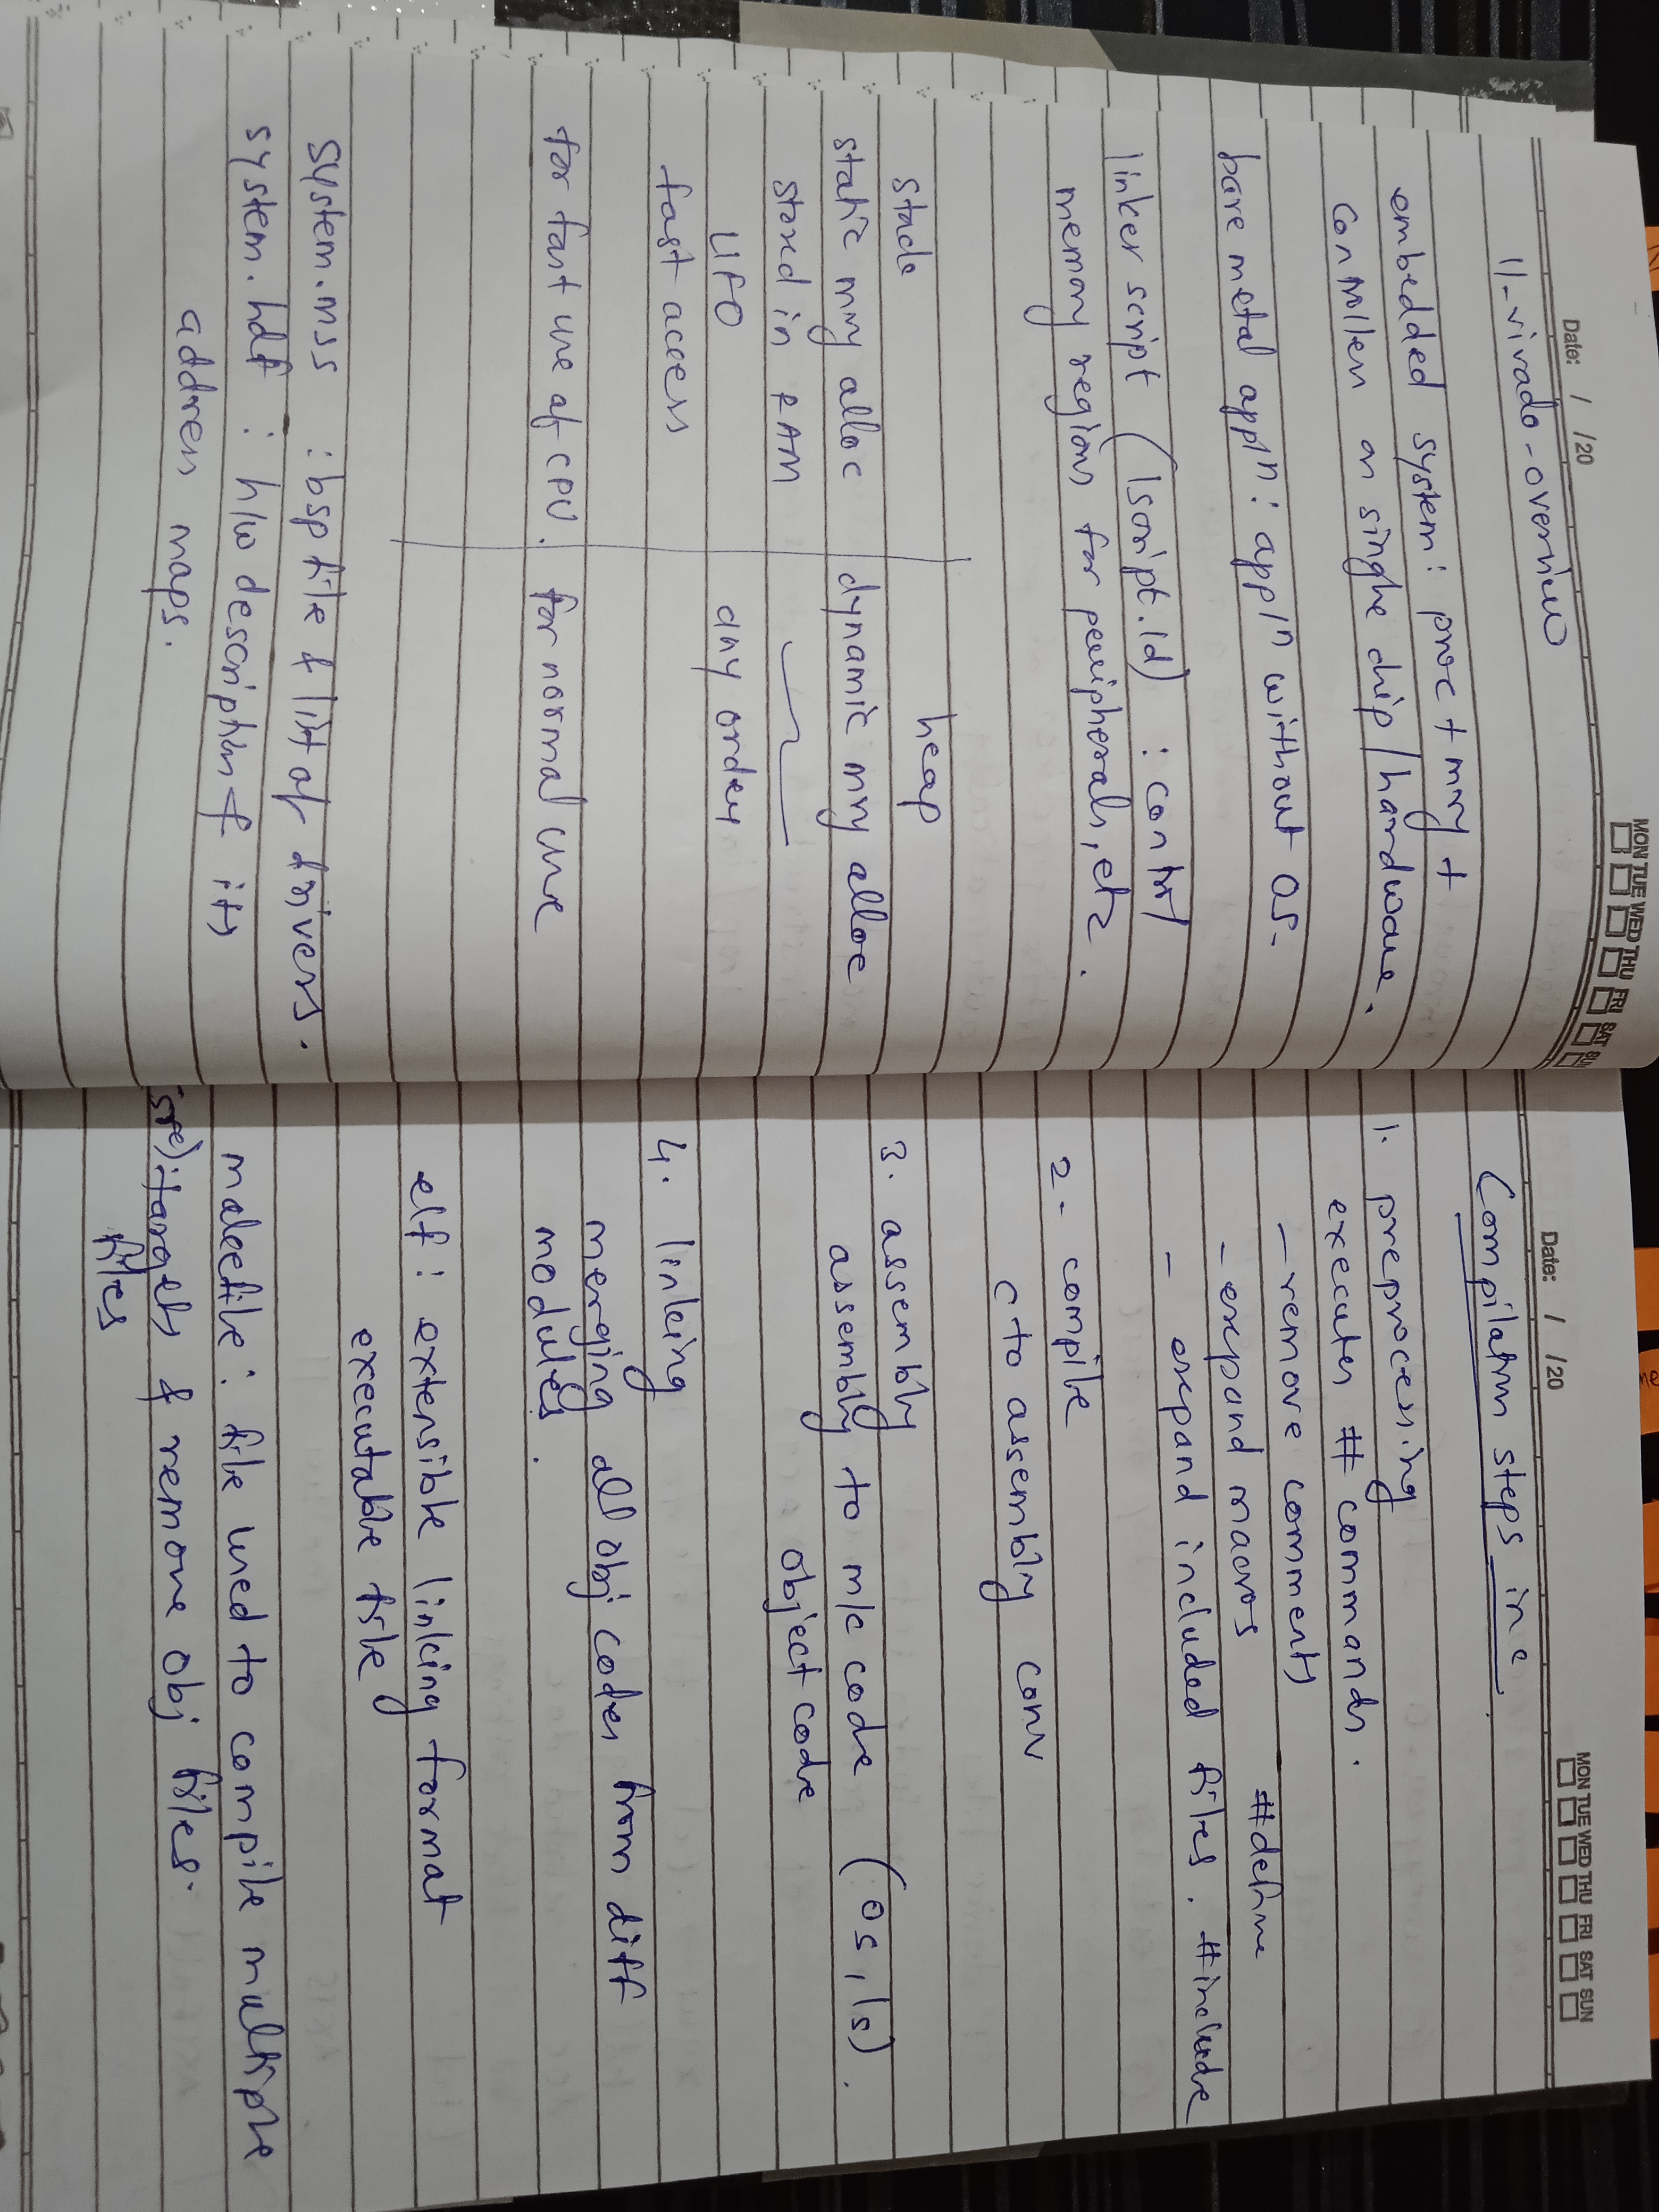 Date: / /20
MON TUE WED THU FRI SAT SUN
11-vivado-overview
embedded system: proc + mry +
controller on single chip/hardware.
bare metal appln: appln without OS.
linker script (lscript.ld) : control
memory regions for peripherals, etc.
stack heap
static mry alloc dynamic mry alloc
stored in RAM
LIFO any order
fast access
for fast use of CPU. for normal use
system.mss : bsp file & list of drivers.
system.hdf : h/w description & its
address maps.
Date: / /20
MON TUE WED THU FRI SAT SUN
Compilation steps in c
1. preprocessing
executes # commands.
- remove comments
- expand macros #define
- expand included files. #include
2- compile
c to assembly conv
3. assembly
assembly to m/c code (0s, 1s).
object code
4. linking
merging all obj codes from diff
modules.
elf: extensible linking format
executable file
makefile: file used to compile multiple
(src): targets & remove obj files.
files